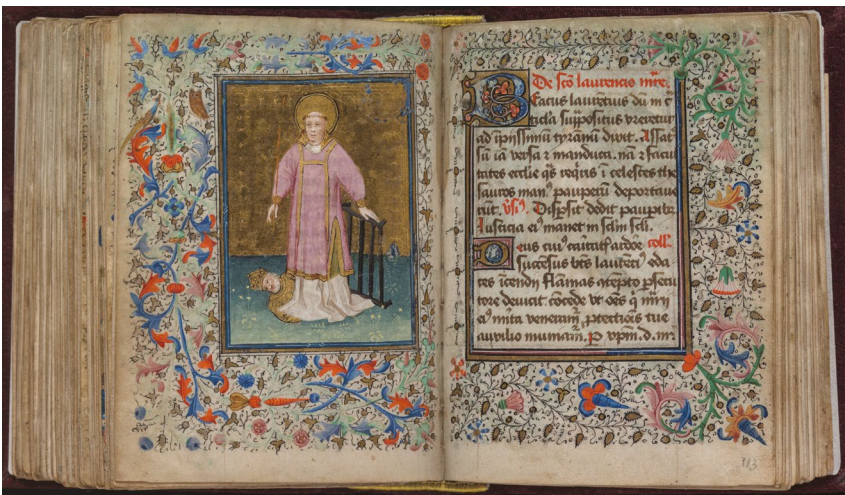 De sco laurencio mre.
Eatus laurētius dū in c
ticla sup̄positus ureretur
ad ipīssimū tyrānū dixit. Assat
sū iā versa ⁊ manduca. nā ⁊ facul
tates ecclie q̄s reqris ī celestes the
sauros man⁹ pauperū deportaue
rūt. vs⁹. Dispsit dedit paupib⁹.
Iusticia ei⁹ manet in sclm scli.
eus cui⁹ caritat̄ ardore coll̄.
succēsus bts laurēci⁹ eda
ces īcendii flāmas ɔtēpto psecu
tore deuicit. cōcede vt oēs q̄
ei⁹ mita veneram̄ ptectiōis tue
auxilio muniam̄. P xpm. d. nr̄
113